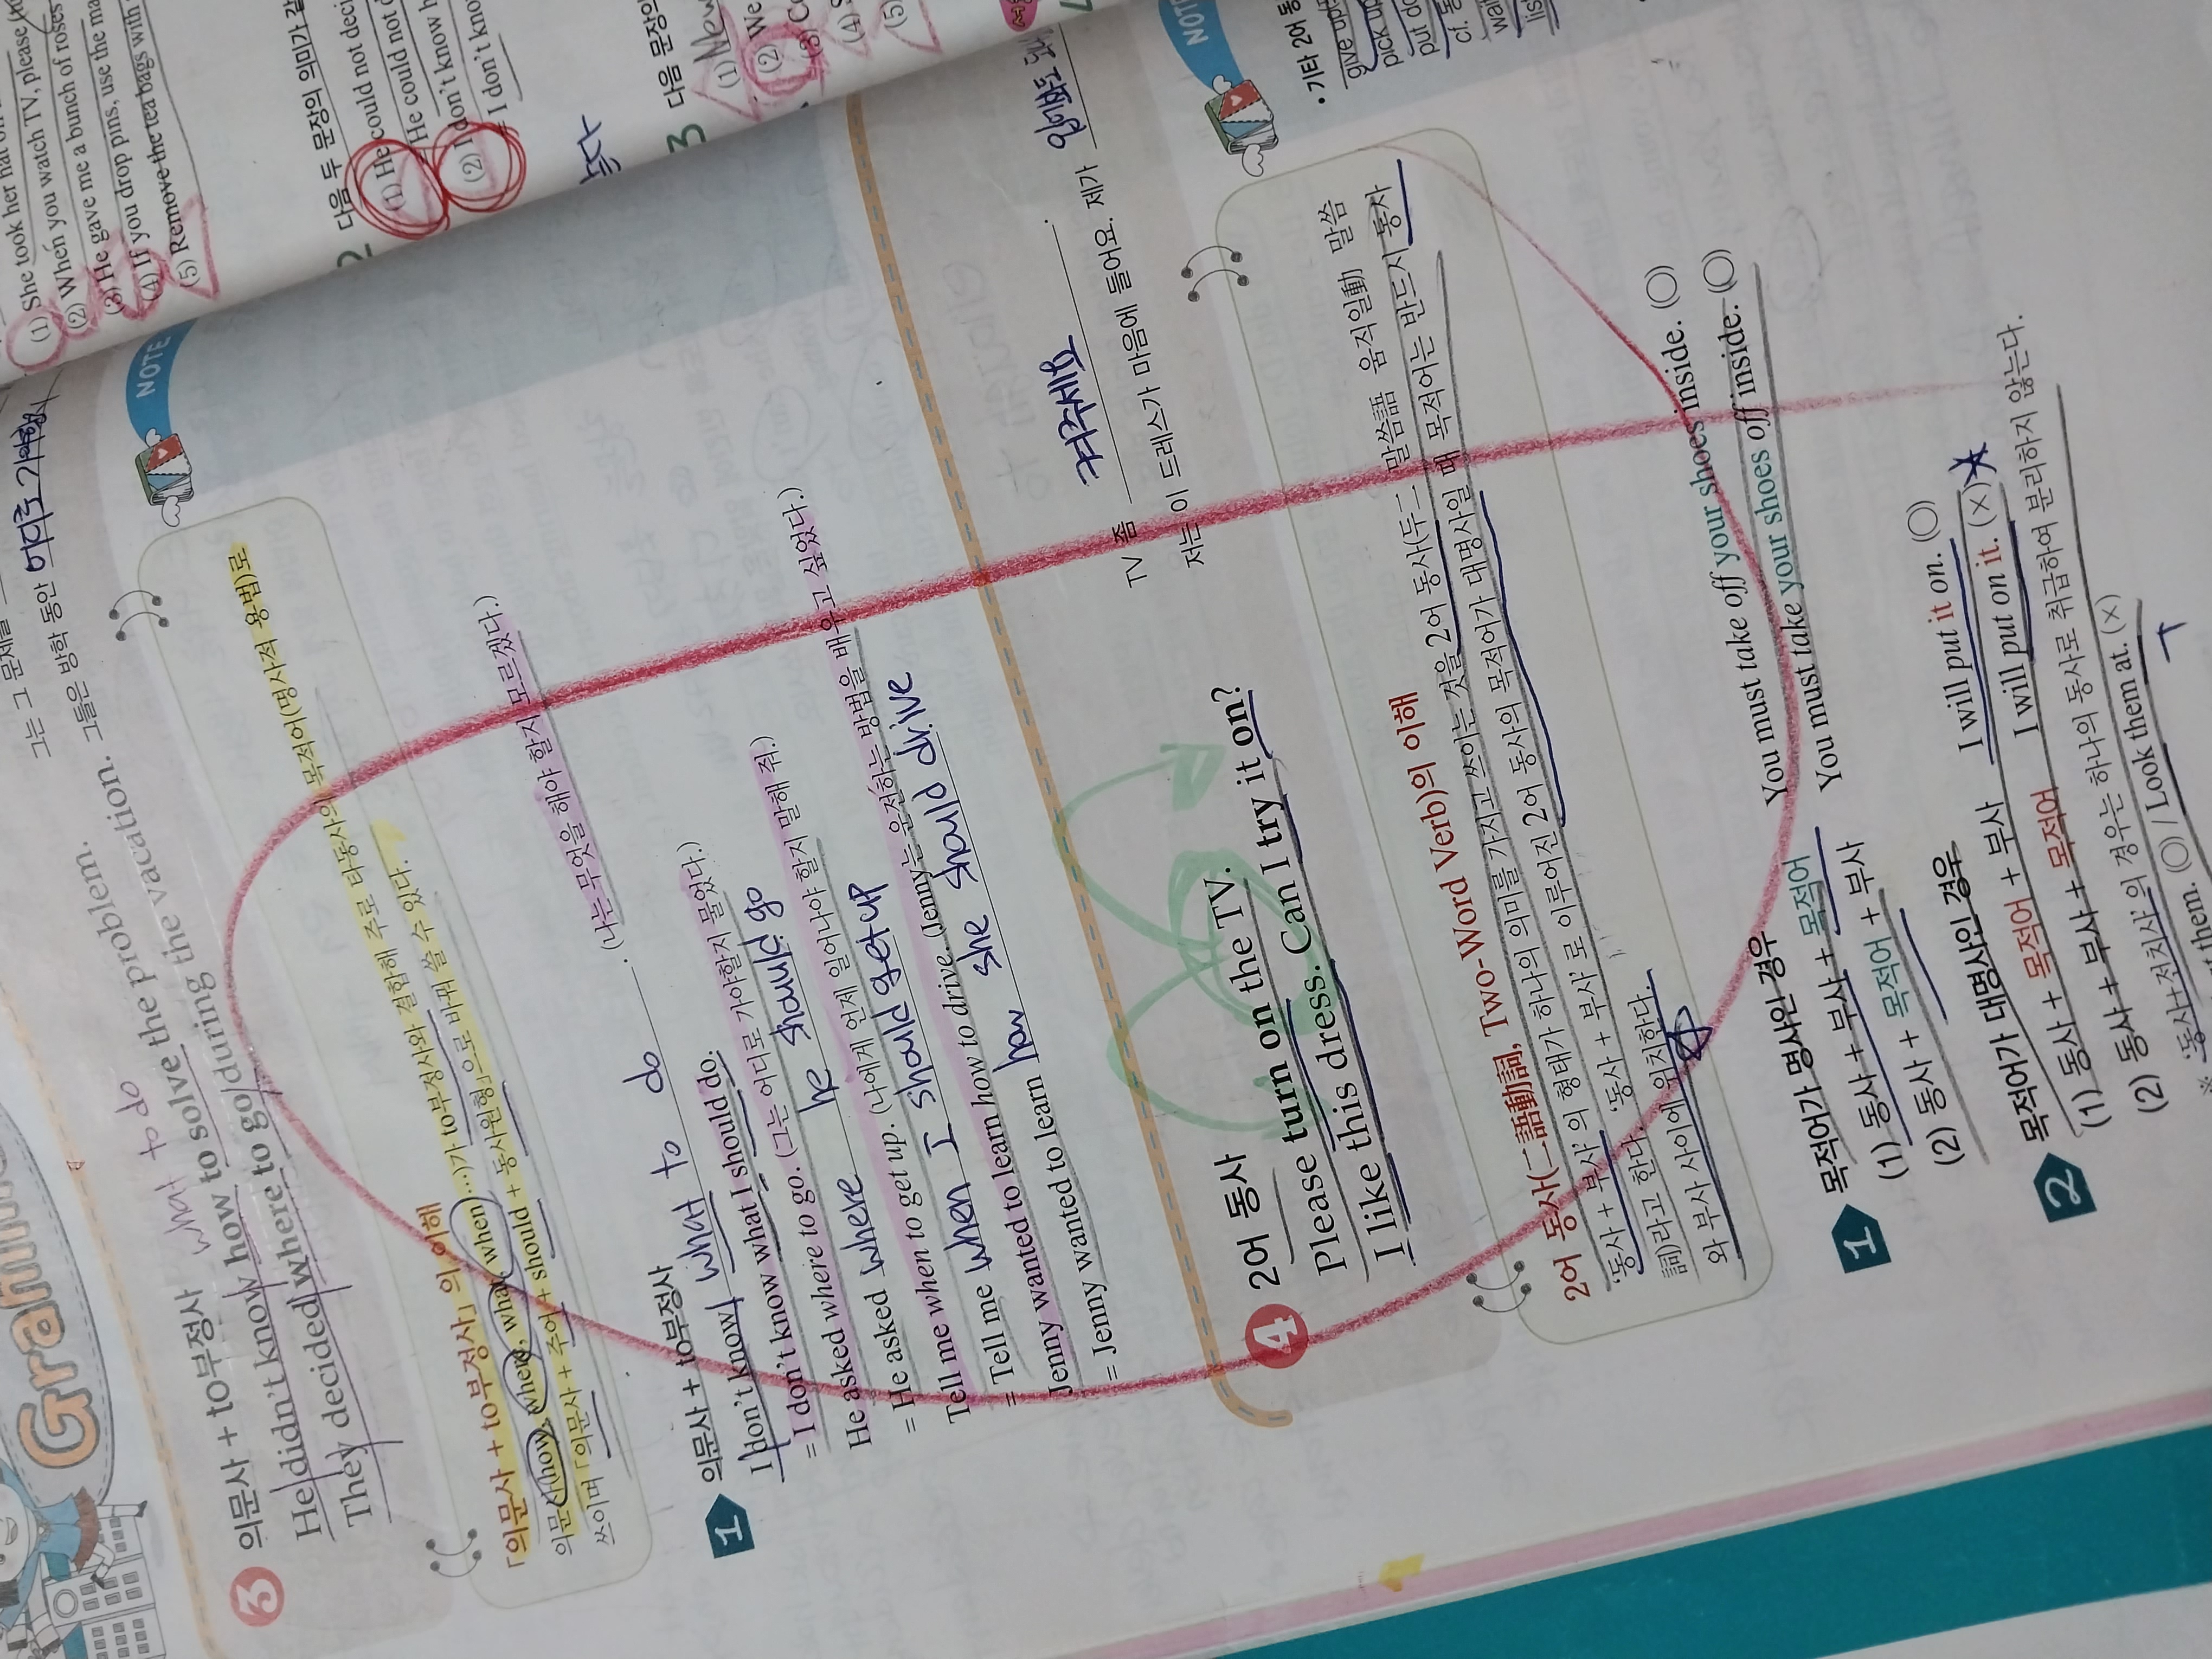 (1) She took her hat off
(2) When you watch TV, please
(3) He gave me a bunch of roses
(4) If you drop pins, use the ma
(5) Remove the tea bags with
2 다음 두 문장의 의미가 같
(1) He could not deci
He could not d
(2) I don't know h
= I don't kno
3 다음 문장의
(1) New
(2) We
(3) Co
(4)
(5)
3 의문사 + to부정사 what to do
He didn't know how to solve the problem. 그는 그 문제를
They decided where to go during the vacation. 그들은 방학 동안 어디로 가야할지
NOTE
「의문사 + to부정사」의 이해
의문사(how, where, what, when …)가 to부정사와 결합해 주로 타동사의 목적어(명사적 용법)로
쓰이며 「의문사 + 주어 + should + 동사원형」으로 바꿔 쓸 수 있다.
1 의문사 + to부정사
I don't know what to do. (나는 무엇을 해야 할지 모르겠다.)
= I don't know what I should do.
He asked where to go. (그는 어디로 가야할지 물었다.)
= He asked where he should go
Tell me when to get up. (나에게 언제 일어나야 할지 말해 줘.)
= Tell me when I should get up
Jenny wanted to learn how to drive. (Jenny는 운전하는 방법을 배우고 싶었다.)
= Jenny wanted to learn how she should drive
4 2어 동사
Please turn on the TV. TV 좀 켜주세요.
I like this dress. Can I try it on? 저는 이 드레스가 마음에 들어요. 제가 입어봐도
NOTE
2어 동사(二語動詞, Two-Word Verb)의 이해
'동사 + 부사'의 형태가 하나의 의미를 가지고 쓰이는 것을 2어 동사(두二 말씀語 움직일動 말씀
詞)라고 한다. '동사 + 부사'로 이루어진 2어 동사의 목적어가 대명사일 때 목적어는 반드시 동사
와 부사 사이에 위치한다.
• 기타 2어 동
give up
pick up
put do
cf. 동
wai
lis
1 목적어가 명사인 경우
(1) 동사 + 부사 + 목적어 You must take off your shoes inside. (○)
(2) 동사 + 목적어 + 부사 You must take your shoes off inside. (○)
2 목적어가 대명사인 경우
(1) 동사 + 목적어 + 부사 I will put it on. (○)
(2) 동사 + 부사 + 목적어 I will put on it. (×)
※ '동사+전치사'의 경우는 하나의 동사로 취급하여 분리하지 않는다.
at them. (○) / Look them at. (×)